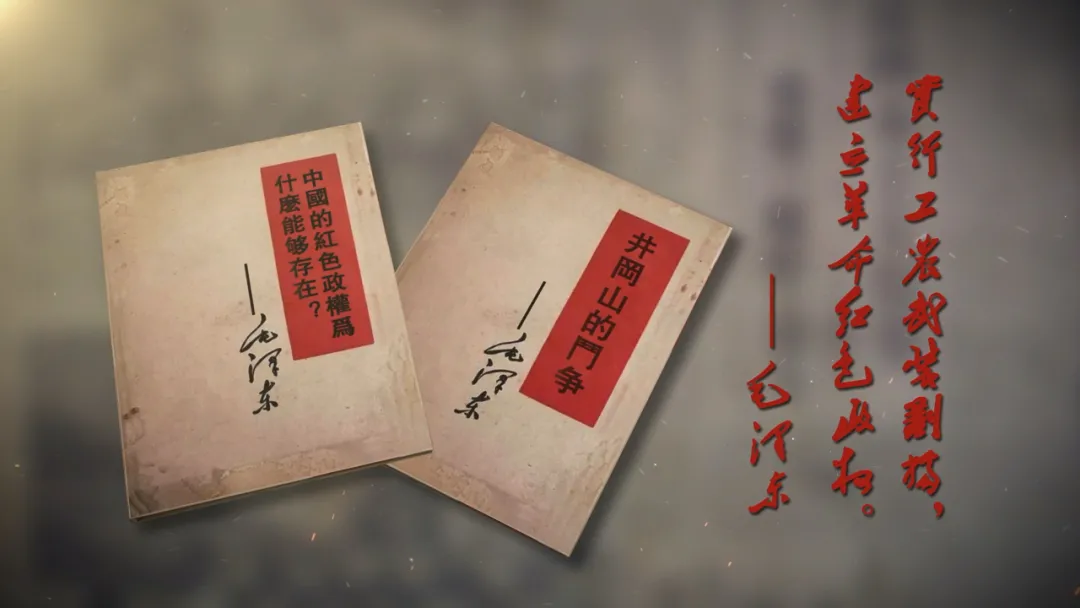 中國的紅色政權爲
什麽能够存在?
—毛泽东
井岡山的鬥争
—毛泽东
實行工農武装割據,
建立革命红色政权。
—毛泽东